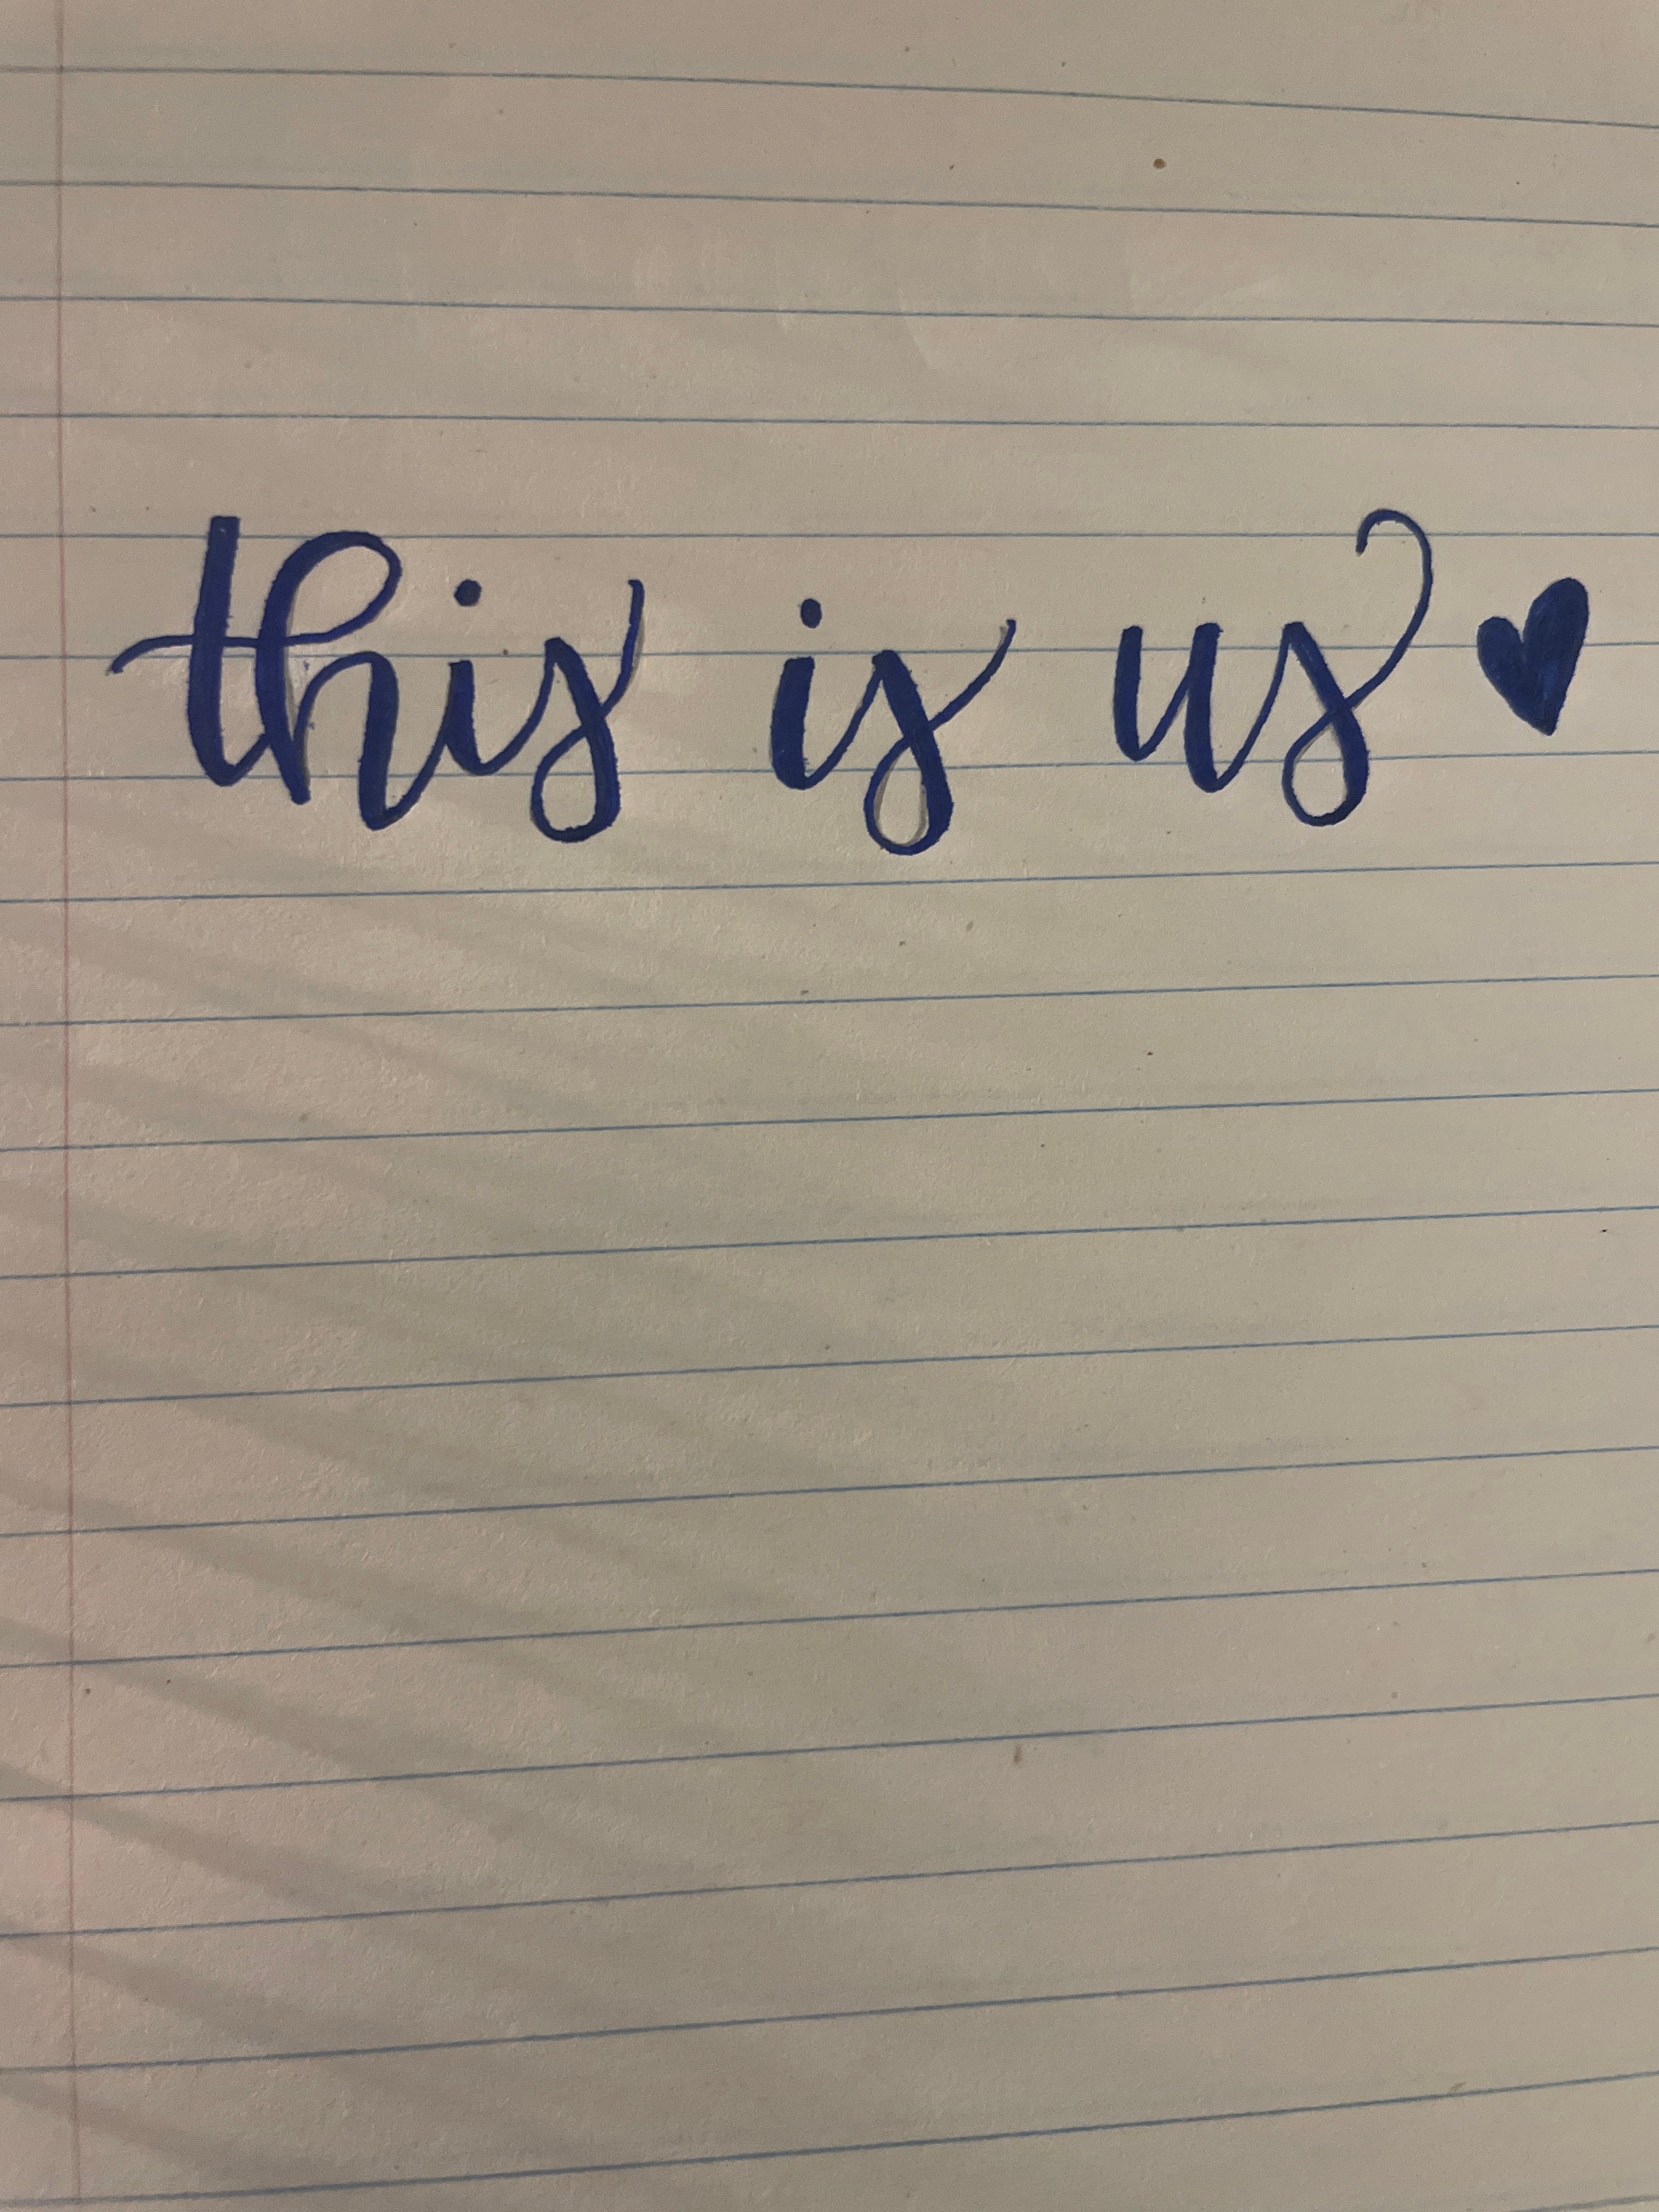 this is us♥